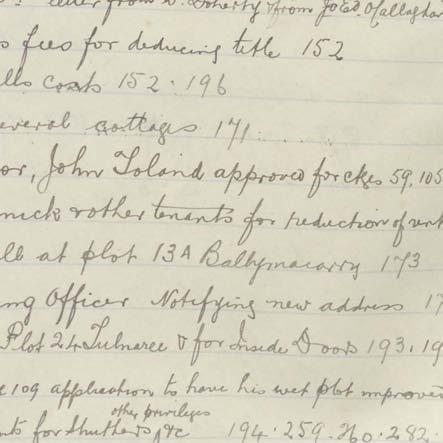 letter from W. Doherty & from Jo Ed. O'Callaghan
s fees for deducing title 152
lls costs 152 . 196
everal cottages 171
or, John Toland approved for ctges 59, 105
mick & other tenants for reduction of rent
ll at plot 13A Ballymacarry 173
ng Officer Notifying new address 17
Plot 24 Tulnaree & for Inside Doors 193 . 19
e 109 application to have his wet plot improved
other privileges
nts for Shutters &c 194 . 259 . 260 . 282 .